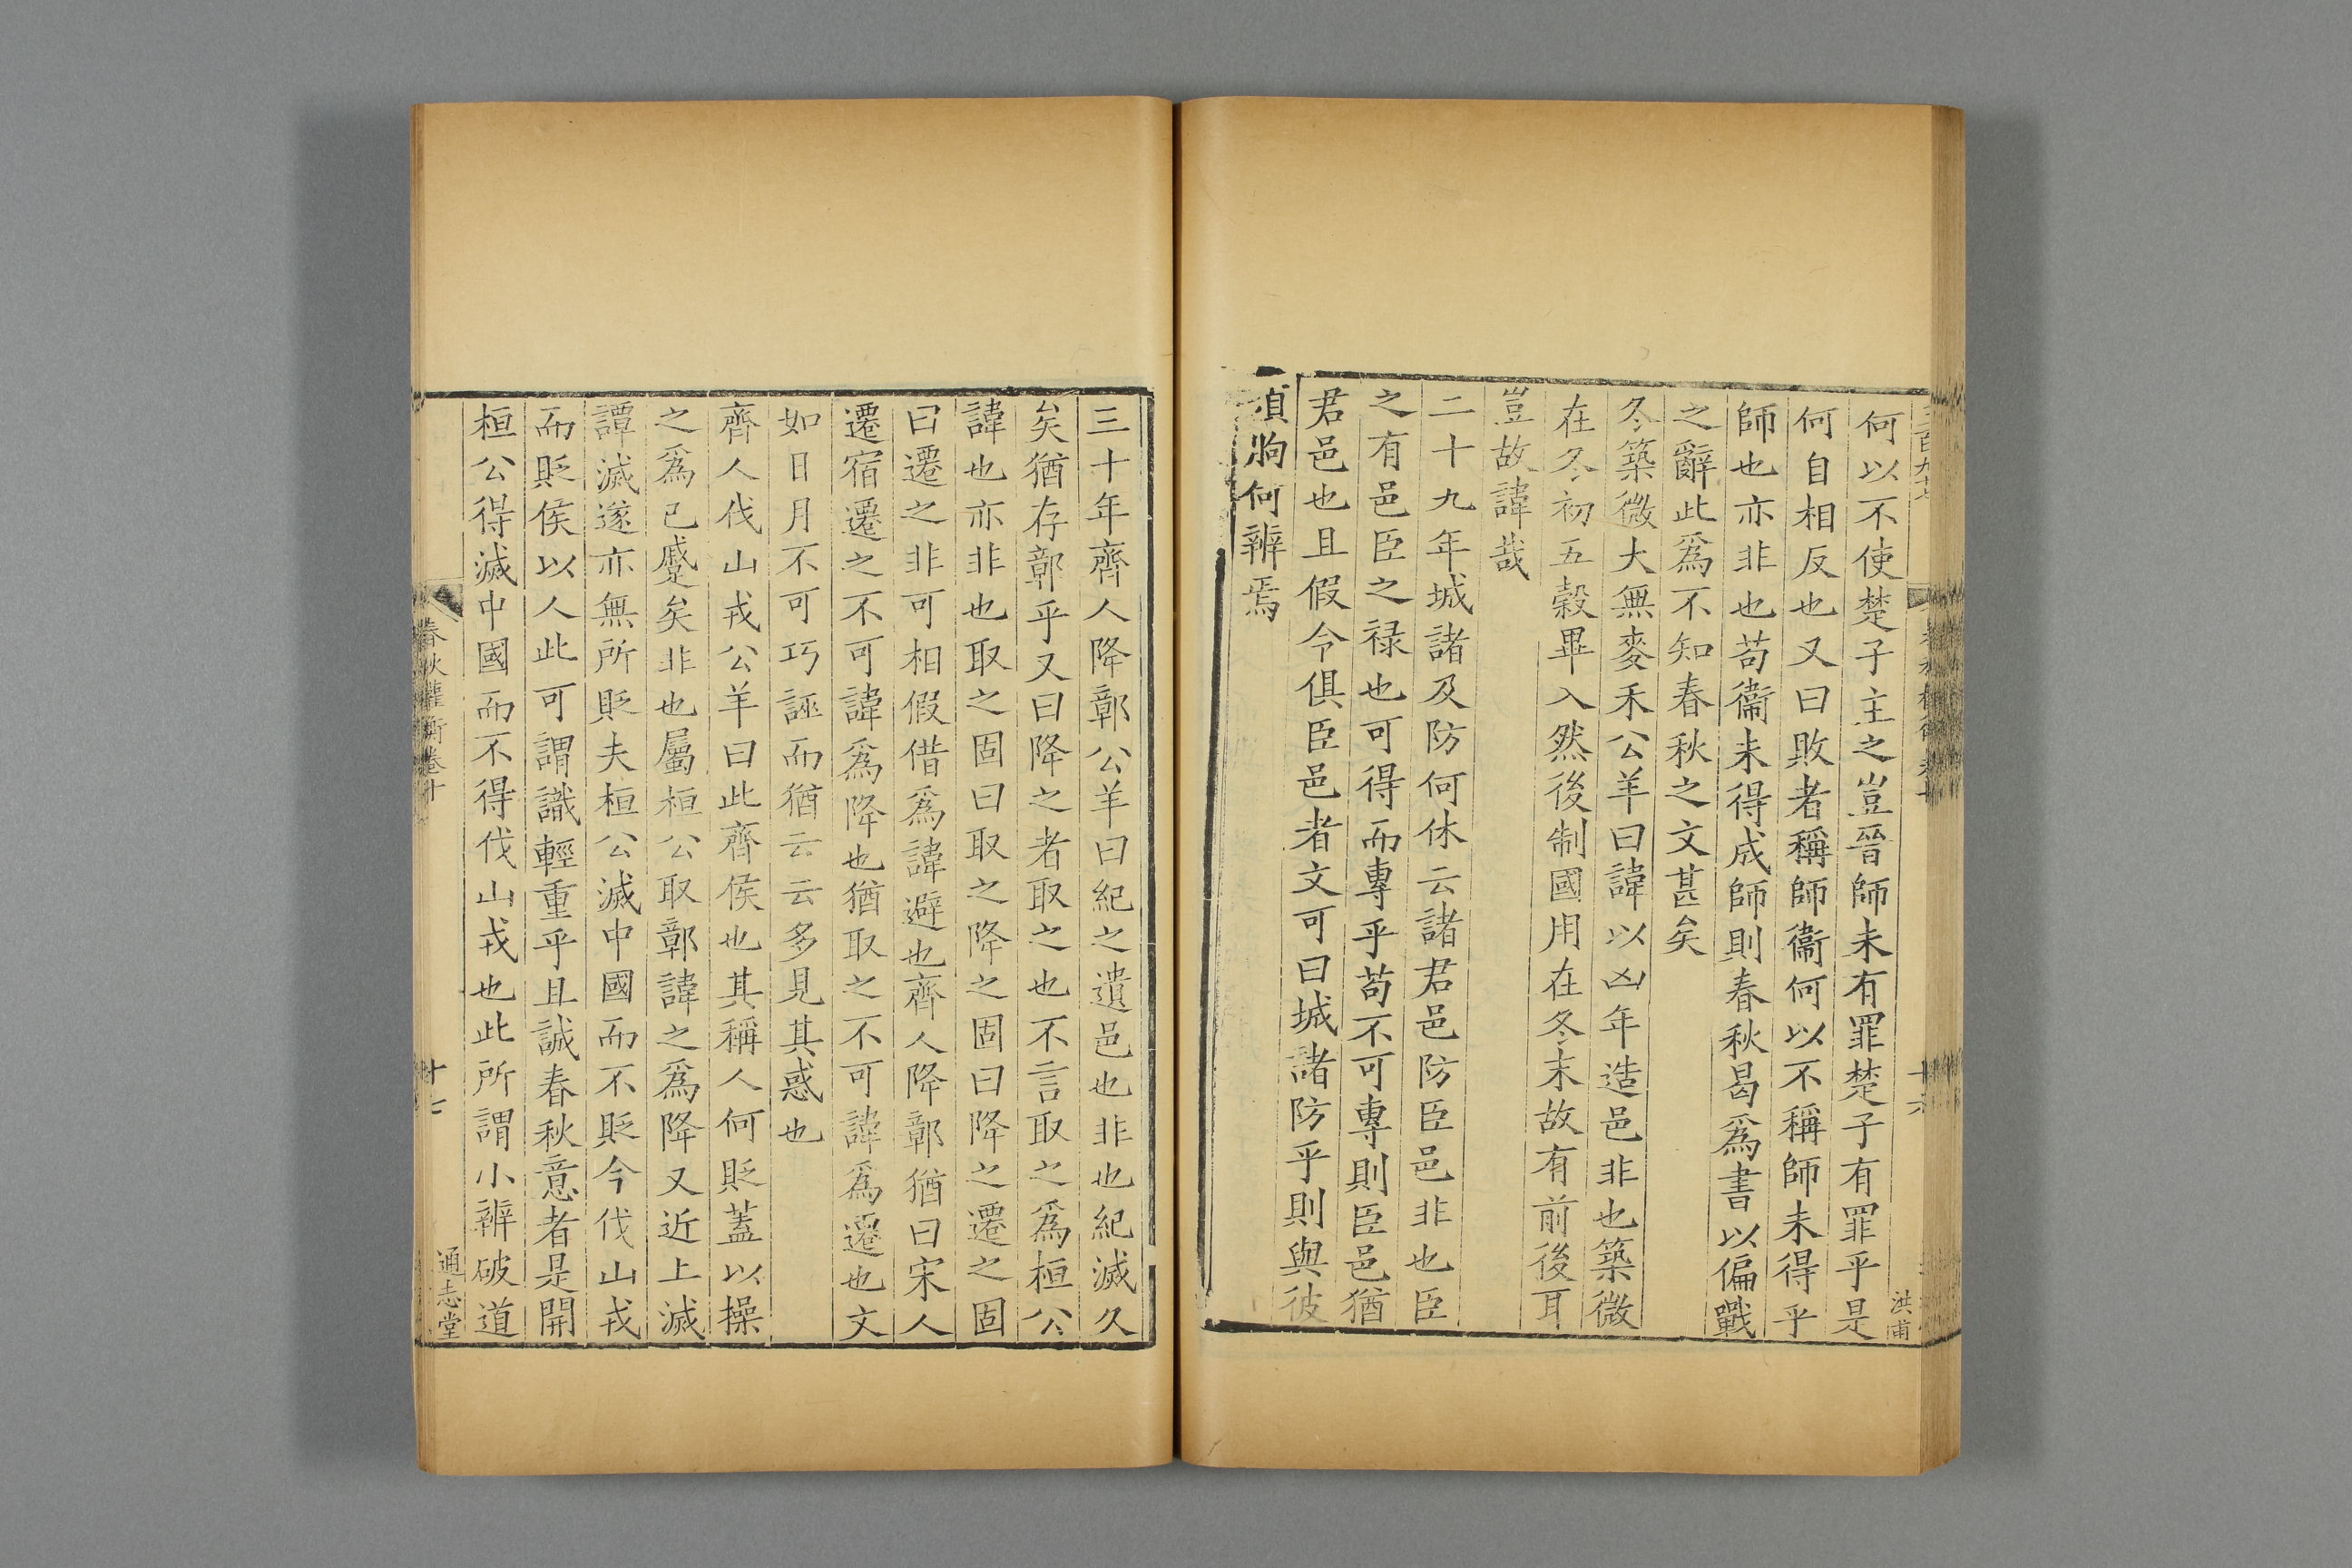 何以不使楚子主之豈晉師未有罪楚子有罪乎是
何自相反也又曰敗者稱師衞何以不稱師未得乎
師也亦非也苟衞未得成師則春秋曷爲書以偏戰
之辭此爲不知春秋之文甚矣
冬築微大無麥禾公羊曰諱以凶年造邑非也築微
在冬初五穀畢入然後制國用在冬末故有前後耳
豈故諱哉
二十九年城諸及防何休云諸君邑防臣邑非也臣
之有邑臣之禄也可得而專乎苟不可專則臣邑猶
君邑也且假令俱臣邑者文可曰城諸防乎則與彼
湏朐何辨焉
洪甫
三十年齊人降鄣公羊曰紀之遺邑也非也紀滅久
矣猶存鄣乎又曰降之者取之也不言取之爲桓公
諱也亦非也取之固曰取之降之固曰降之遷之固
曰遷之非可相假借爲諱避也齊人降鄣猶曰宋人
遷宿遷之不可諱爲降也猶取之不可諱爲遷也文
如日月不可巧誣而猶云云多見其惑也
齊人伐山戎公羊曰此齊侯也其稱人何貶蓋以操
之爲已蹙矣非也屬桓公取鄣諱之爲降又近上滅
譚滅遂亦無所貶夫桓公滅中國而不貶今伐山戎
而貶侯以人此可謂識輕重乎且誠春秋意者是開
桓公得滅中國而不得伐山戎也此所謂小辨破道
春秋權衡卷十
十七
通志堂